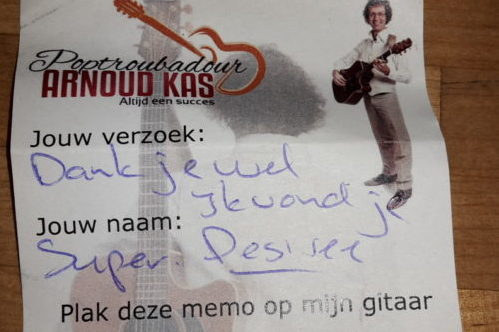 Poptroubadour
ARNOUD KAS
Altijd een succes
Jouw verzoek:
Dank je wel
Ik vond je
Jouw naam:
Super. Desiree
Plak deze memo op mijn gitaar